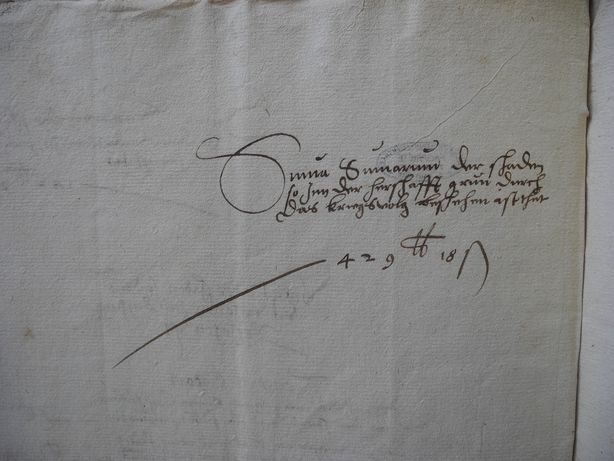 Suma Sumarum der schaden
so Inn der herschafft grun durch
das kriegsvolg beschehen
429 lb 18 ß